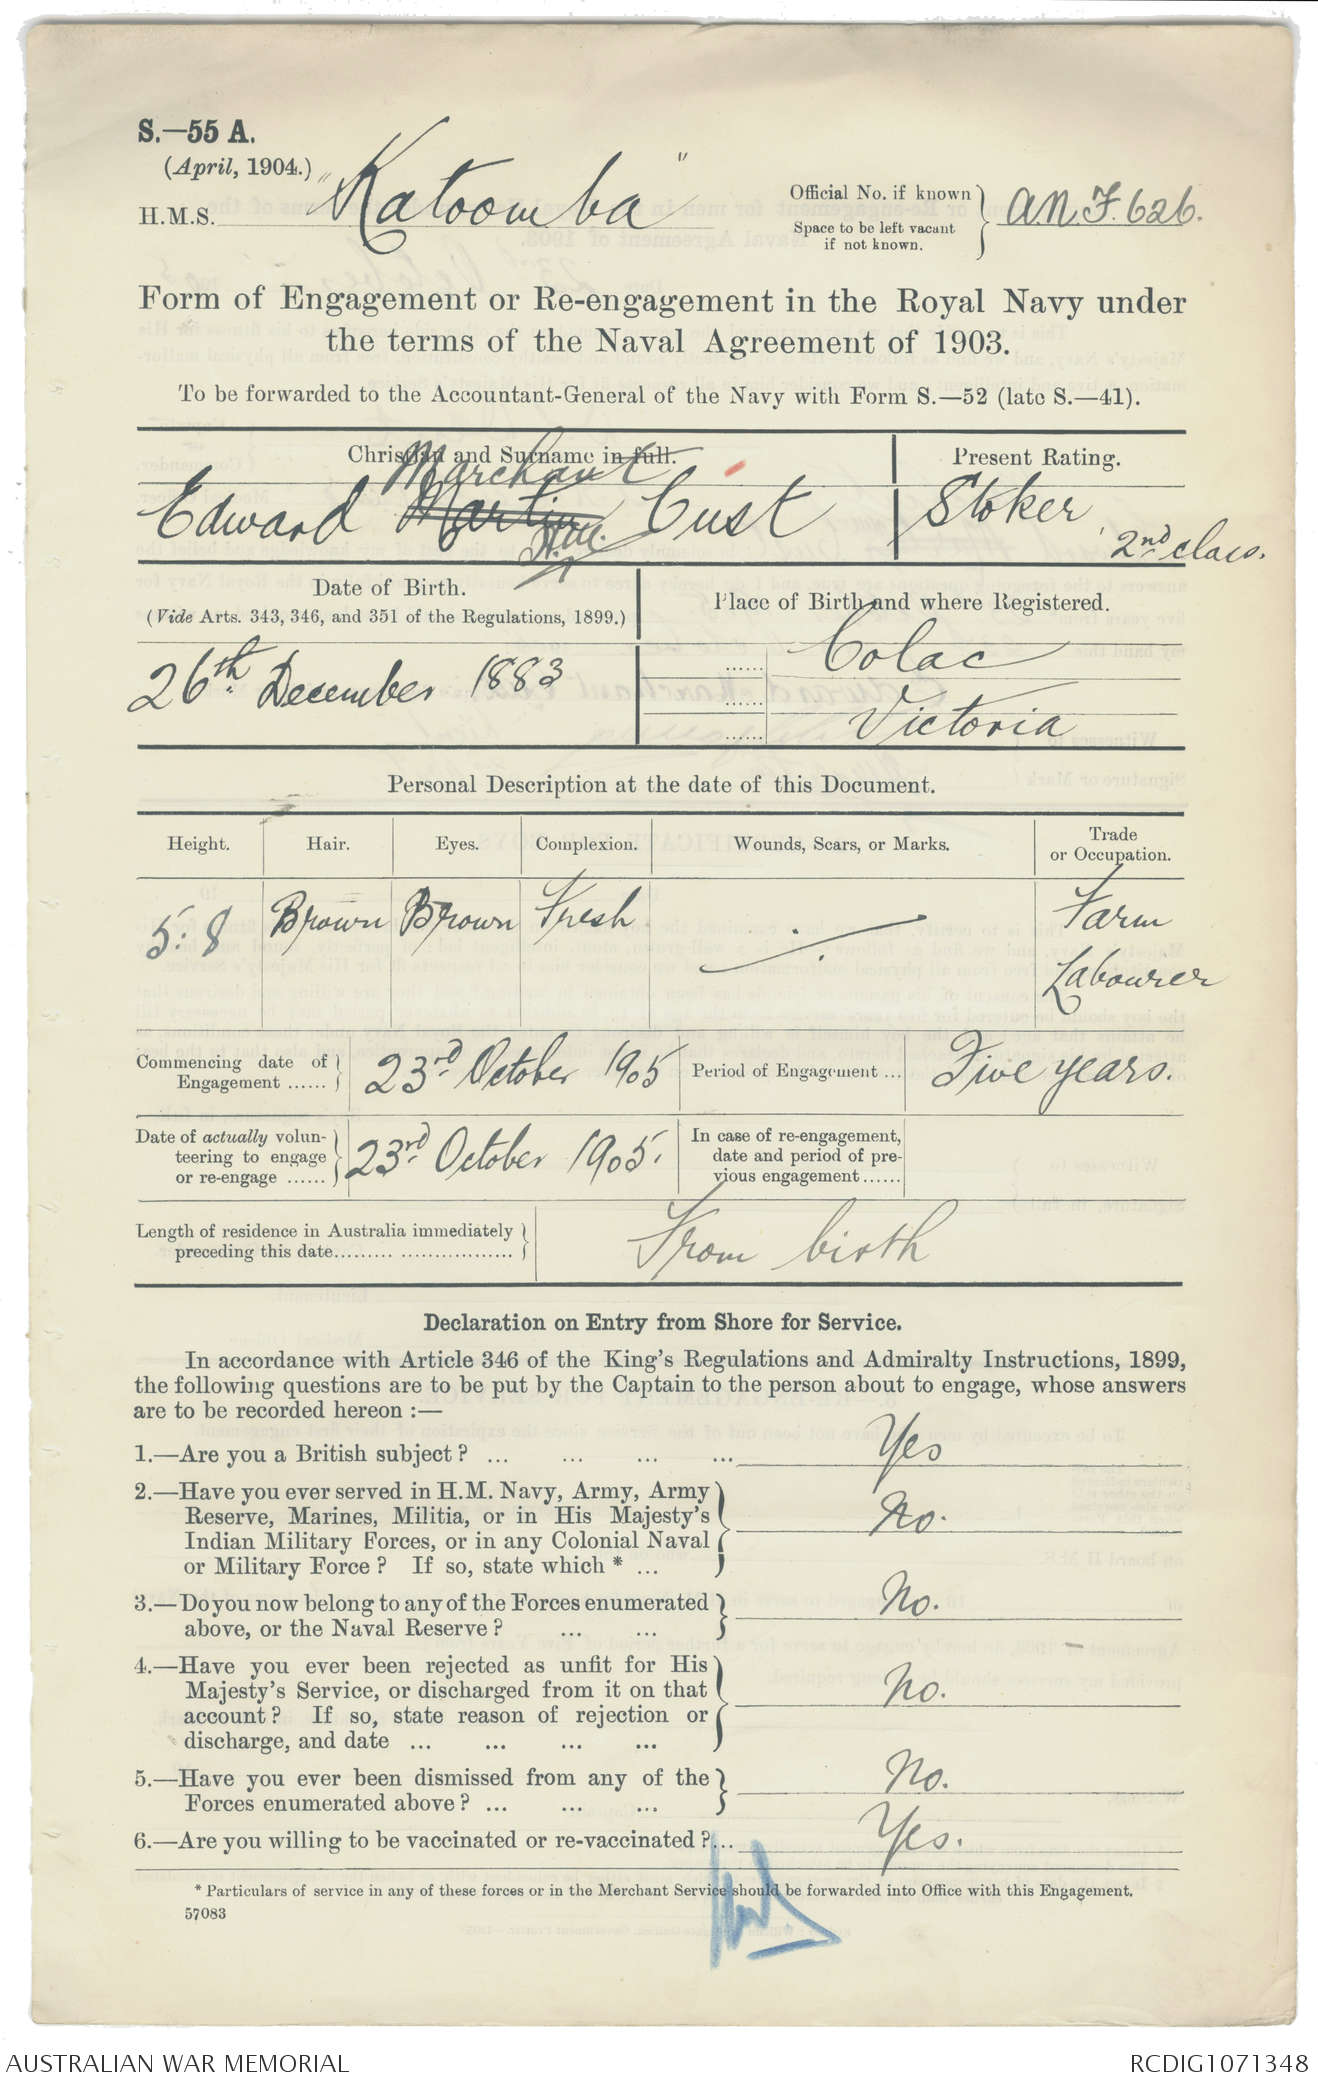 S.—55 A.
(April, 1904.)
H.M.S. "Katoomba"
Official No. if known
Space to be left vacant
if not known.
A.N.F. 626.
Form of Engagement or Re-engagement in the Royal Navy under
the terms of the Naval Agreement of 1903.
To be forwarded to the Accountant-General of the Navy with Form S.—52 (late S.—41).
Christian and Surname in full.
Present Rating.
Marchant
Edward Martin Cust
Stoker
2nd class.
Date of Birth.
(Vide Arts. 343, 346, and 351 of the Regulations, 1899.)
Place of Birth and where Registered.
26th December 1883
Colac
Victoria
Personal Description at the date of this Document.
Height. Hair. Eyes. Complexion. Wounds, Scars, or Marks. Trade
or Occupation.
5. 8 Brown Brown Fresh Farm
Labourer
Commencing date of
Engagement ......
23rd October 1905
Period of Engagement ...
Five years.
Date of actually volun-
teering to engage
or re-engage ......
23rd October 1905.
In case of re-engagement,
date and period of pre-
vious engagement ......
Length of residence in Australia immediately
preceding this date......... ..................
From birth
Declaration on Entry from Shore for Service.
In accordance with Article 346 of the King's Regulations and Admiralty Instructions, 1899,
the following questions are to be put by the Captain to the person about to engage, whose answers
are to be recorded hereon :—
1.—Are you a British subject ? ... ... ... ... Yes
2.—Have you ever served in H.M. Navy, Army, Army
Reserve, Marines, Militia, or in His Majesty's
Indian Military Forces, or in any Colonial Naval
or Military Force ? If so, state which * ...
No.
3.—Do you now belong to any of the Forces enumerated
above, or the Naval Reserve ? ... ...
No.
4.—Have you ever been rejected as unfit for His
Majesty's Service, or discharged from it on that
account ? If so, state reason of rejection or
discharge, and date ... ... ... ...
No.
5.—Have you ever been dismissed from any of the
Forces enumerated above ? ... ... ...
No.
6.—Are you willing to be vaccinated or re-vaccinated ?... Yes.
* Particulars of service in any of these forces or in the Merchant Service should be forwarded into Office with this Engagement.
57083
AUSTRALIAN WAR MEMORIAL
RCDIG1071348